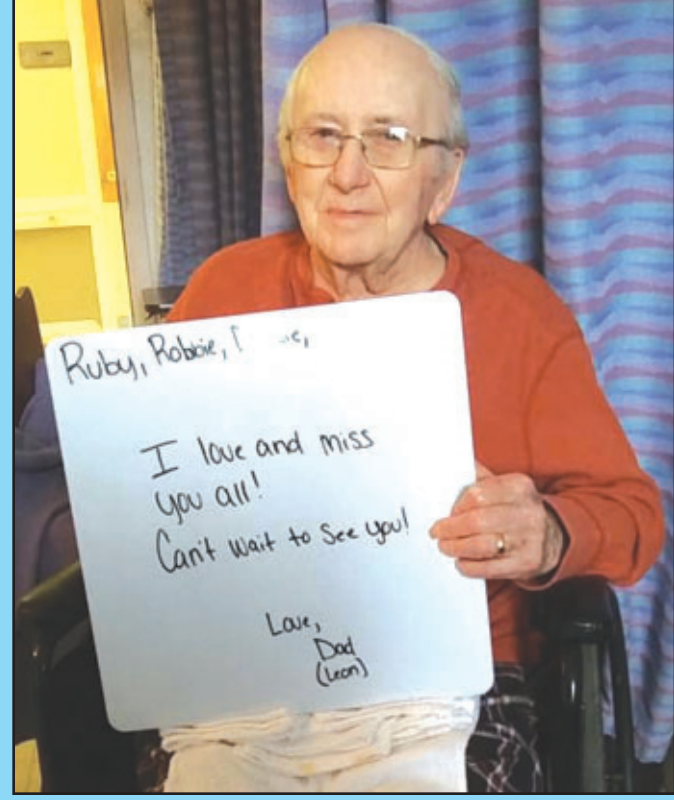 Ruby, Robbie,
I love and miss
you all!
Can't wait to see you!
Love,
Dad
(Leon)